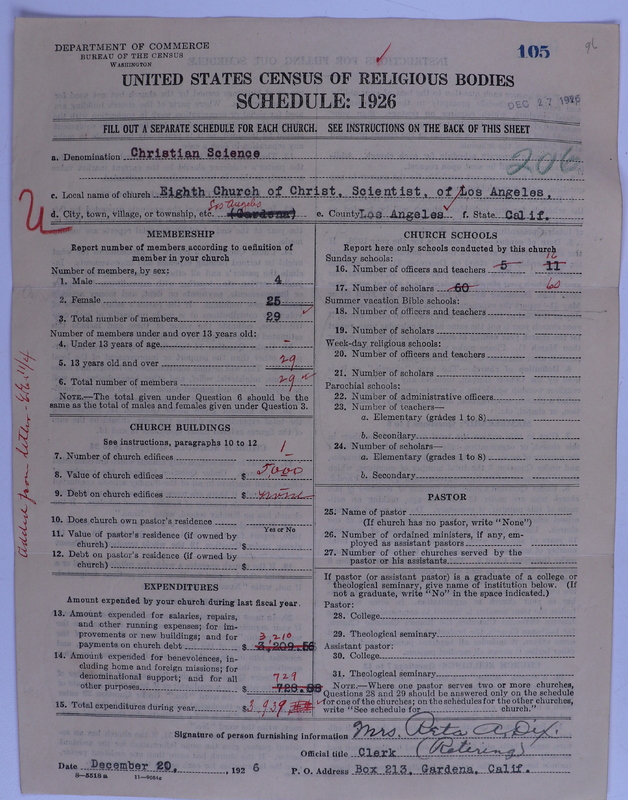 DEPARTMENT OF COMMERCE
BUREAU OF THE CENSUS
WASHINGTON
105
96
UNITED STATES CENSUS OF RELIGIOUS BODIES
SCHEDULE: 1926
DEC 27 1926
FILL OUT A SEPARATE SCHEDULE FOR EACH CHURCH. SEE INSTRUCTIONS ON THE BACK OF THIS SHEET
a. Denomination Christian Science
206
c. Local name of church Eighth Church of Christ, Scientist, of Los Angeles,
d. City, town, village, or township, etc. Los Angeles (Gardena) e. County Los Angeles f. State Calif.
MEMBERSHIP
Report number of members according to definition of
member in your church
Number of members, by sex:
1. Male 4
2. Female 25
3. Total number of members 29
Number of members under and over 13 years old:
4. Under 13 years of age –
5. 13 years old and over 29
6. Total number of members 29
NOTE.—The total given under Question 6 should be the
same as the total of males and females given under Question 3.
CHURCH BUILDINGS
See instructions, paragraphs 10 to 12
7. Number of church edifices 1
8. Value of church edifices $ 5,000
9. Debt on church edifices $ none
10. Does church own pastor's residence
Yes or No
11. Value of pastor's residence (if owned by
church) $
12. Debt on pastor's residence (if owned by
church) $
EXPENDITURES
Amount expended by your church during last fiscal year
13. Amount expended for salaries, repairs,
and other running expenses; for im-
provements or new buildings; and for
payments on church debt $ 3,209.56
3,210
14. Amount expended for benevolences, in-
cluding home and foreign missions; for
denominational support; and for all
other purposes $
729
15. Total expenditures during year $ 3,939
added from letter
CHURCH SCHOOLS
Report here only schools conducted by this church
Sunday schools:
16. Number of officers and teachers 5 11
17. Number of scholars 60 60
Summer vacation Bible schools:
18. Number of officers and teachers
19. Number of scholars
Week-day religious schools:
20. Number of officers and teachers
21. Number of scholars
Parochial schools:
22. Number of administrative officers
23. Number of teachers—
a. Elementary (grades 1 to 8)
b. Secondary
24. Number of scholars—
a. Elementary (grades 1 to 8)
b. Secondary
PASTOR
25. Name of pastor
(If church has no pastor, write "None")
26. Number of ordained ministers, if any, em-
ployed as assistant pastors
27. Number of other churches served by the
pastor or his assistants
If pastor (or assistant pastor) is a graduate of a college or
theological seminary, give name of institution below. (If
not a graduate, write "No" in the space indicated.)
Pastor:
28. College
29. Theological seminary
Assistant pastor:
30. College
31. Theological seminary
NOTE.—Where one pastor serves two or more churches,
Questions 28 and 29 should be answered only on the schedule
for one of the churches; on the schedules for the other churches,
write "See schedule for church."
Signature of person furnishing information Mrs. Reta A. Dix.
Official title Clerk (Retiring)
Date December 20, , 1926 P. O. Address Box 213, Gardena, Calif.
8—5518a 11—9064a